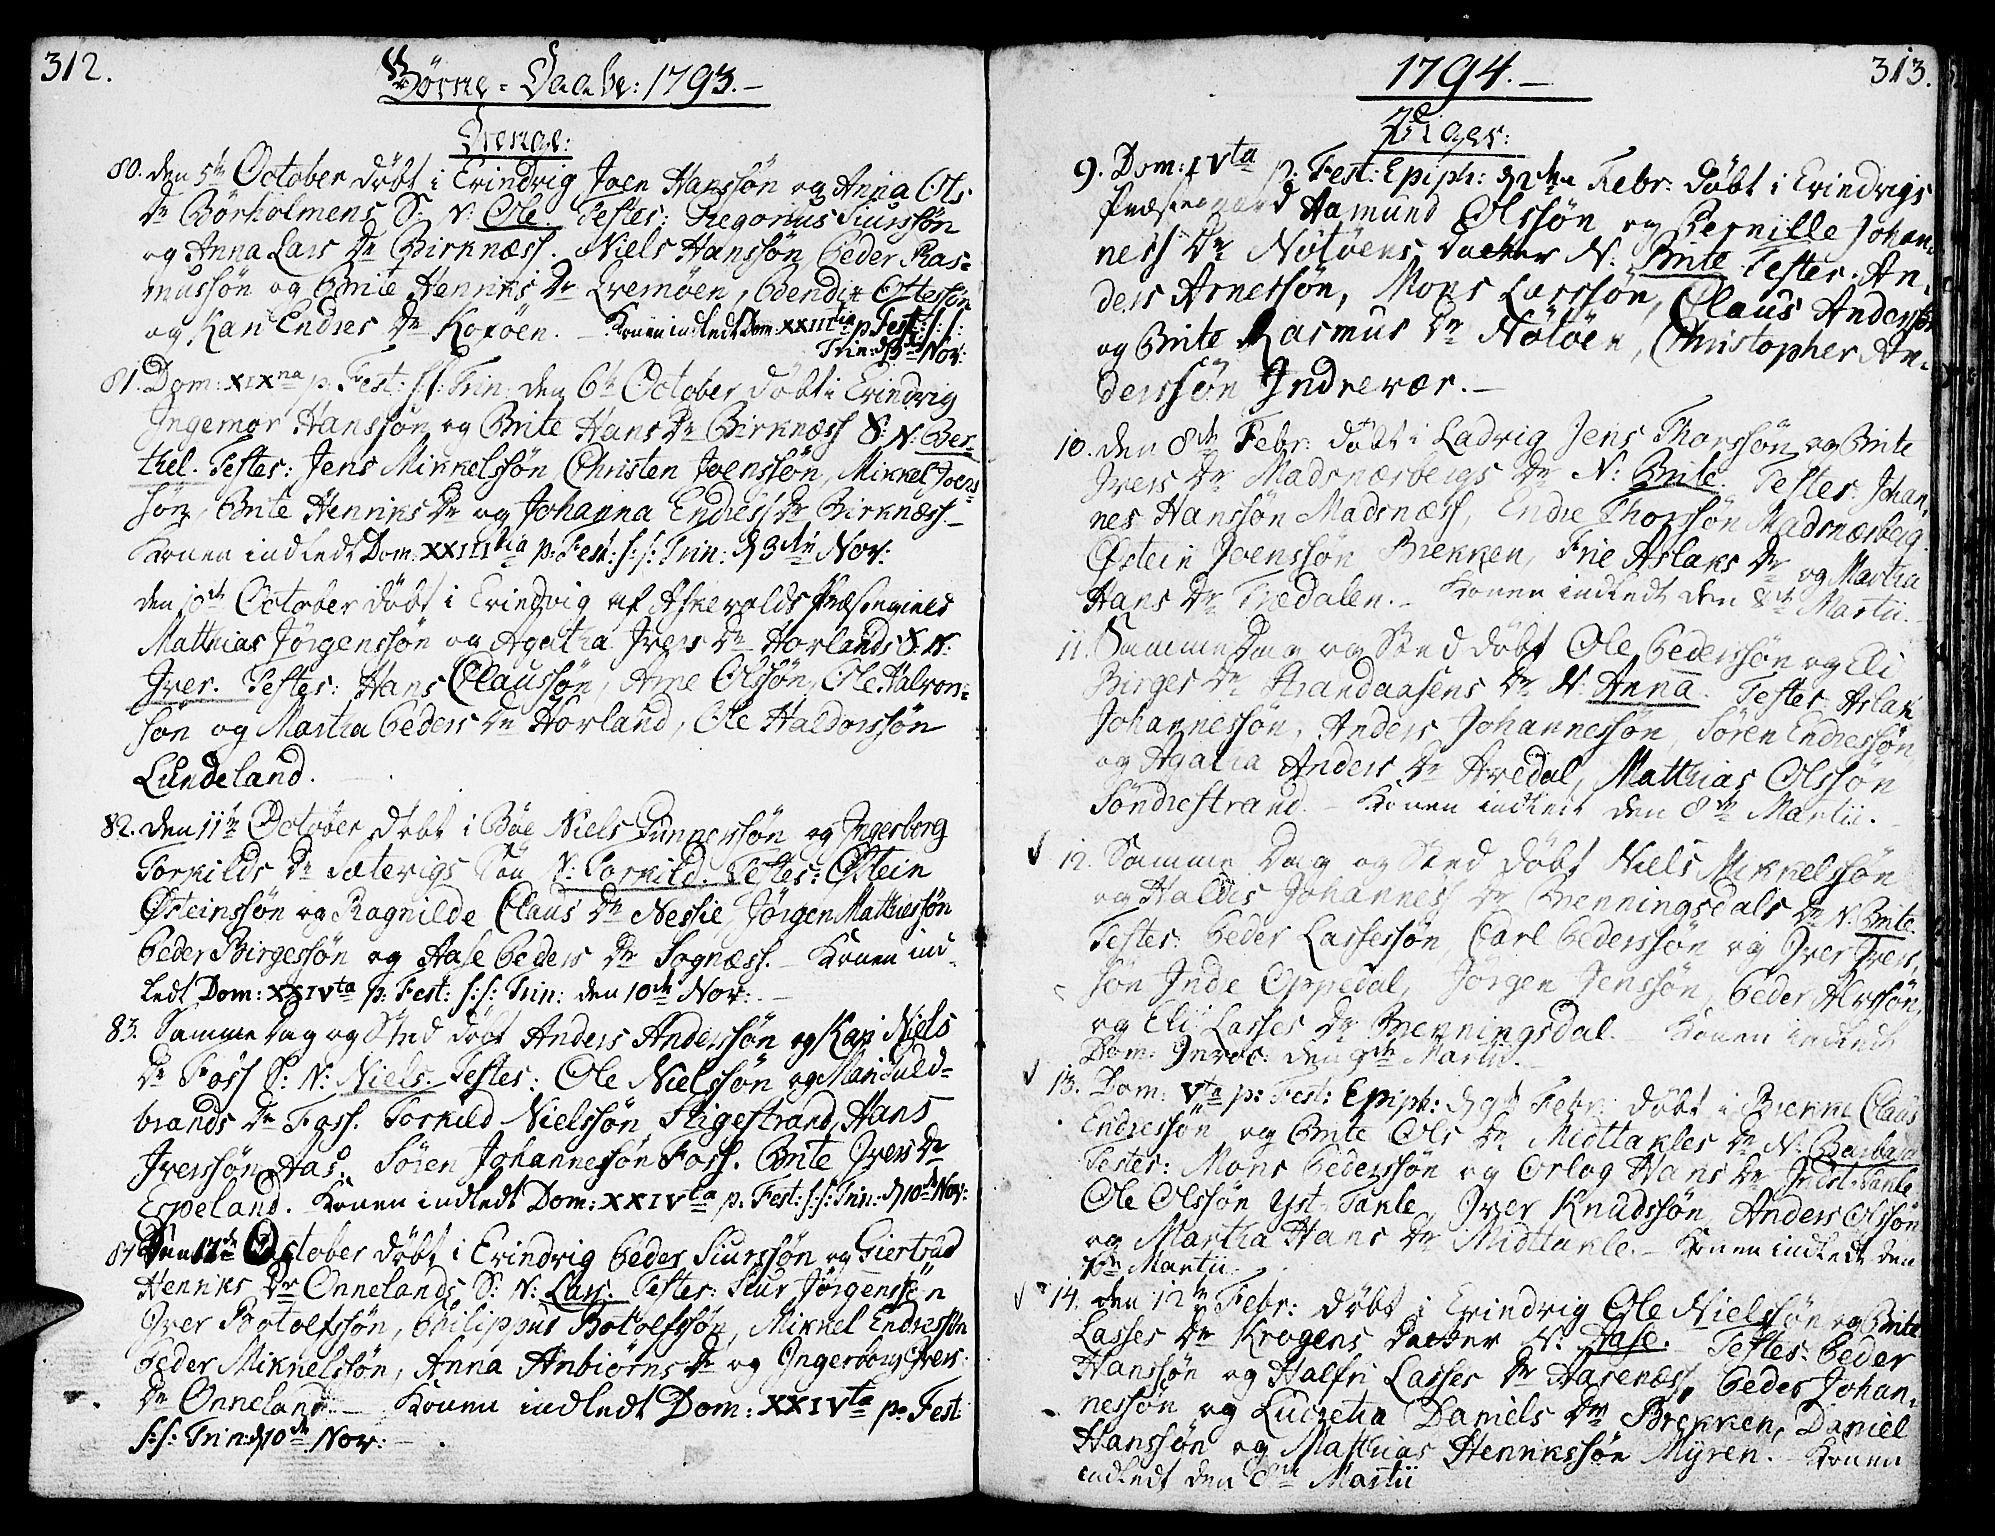 312.
Børne-Daabe: 1793.-
Drenge:
80. den 5te October døbt i Evindvig Joen Hanssøn og Anna Ols
Dr Børholmens S: N: Ole. Testes: Gregorius Siurssøn
og Anna Lars Dr Birknæss. Niels Hanssøn, Peder Ras-
mussøn og Brite Henriks Dr Evenøen, Bendix Ottessøn
og Kari Endres Dr Koxøen. - Konen indledt Dom: XXIIItia p: Fest: s: s:
Trin: d 3die Nov:
81. Dom: XIXna p: Fest: s: s: Trin: den 6te October døbt i Evindvig
Ingemor Hanssøn og Brite Hans Dr Birknæss S: N: Ber-
thel. Testes: Jens Mikkelssøn Christen Joenssøn, Mikkel Joens-
søn, Brite Henriks Dr og Johanna Endres Dr Birknæss -
Konen indledt Dom: XXIIItia p: Fest: s: s: Trin: d 3die Nov:
den 10de October døbt i Evindvig af Askevolds Præstegield
Matthias Jørgenssøn og Agatha Ivers Dr Horlands S: N:
Iver. Testes: Hans Claussøn, Arne Olssøn, Ole Halvor-
søn og Martha Peders Dr Horland, Ole Haldorssøn
Lundeland.
82. den 11te October døbt i Bøe Niels Gunnerssøn og Ingerborg
Torkilds Dr Sætevigs Søn N: Torkild. Testes: Østein
Østeinssøn og Ragnilde Claus Dr Nessie, Jørgen Mathiessøn
Peder Birgessøn og Aase Peders Dr Sognæss. - Konen ind-
ledt Dom: XXIVta p: Fest: s: s: Trin: den 10de Nov: -
83. Samme Dag og Sted døbt Anders Anderssøn og Kari Niels
Dr Foss S: N: Niels. Testes: Ole Nielssøn og Mari Guld-
brands Dr Foss. Torkild Nielssøn Stigestrand, Hans
Iverssøn Aas. Søren Johannessøn Foss. Brite Ivers Dr
Espeland. Konen indledt Dom: XXIVta p: Fest: s: s: Trin: d 10de Nov:
84 Den 12te October døbt i Evindvig Peder Siurssøn og Giertrud
Henriks Dr Onnelands S: N: Lars. Testes: Siur Jørgenssøn
Iver Botolfssøn, Philippus Botolfssøn, Mikkel Endressøn
Peder Mikkelssøn, Anna Anbiørns Dr og Ingerborg Ivers
Dr Onneland. - Konen indledt Dom: XXIVta p: Fest:
s: s: Trin: d 10de Nov: -
1794.-
313.
Piger:
9. Dom: IVta p: Fest: Epiph: d 2den Febr: døbt i Evindvigs
Præstegaard Aamund Olssøn og Pernille Johan-
ness Dr Nøtøens Datter N: Brite Testes: An-
ders Arnessøn, Mons Larssøn, Claus Anderssøn
og Brite Rasmus Dr Nøtøen, Christopher An-
derssøn Indrevær. -
10. den 8de Febr: døbt i Ladvig Jens Thorssøn og Brite
Ivers Dr Madsnærbergs Dr N: Brite. Testes: Johan-
nes Hanssøn Madsnæss, Endre Thorssøn Madsnærberg.
Østein Joenssøn Brekken, Frie Aslaks Dr og Martha
Hans Dr Tredalen. - Konen indledt den 8de Martii. -
11. Samme Dag og Sted døbt Ole Pederssøn og Eli
Birges Dr Strandaasens Dr N: Anna. Testes: Aslak
Johannessøn, Anders Johannessøn, Søren Endressøn
og Agatha Anders Dr Avedal, Matthias Olssøn
Søndrestrand. - Konen indledt den 8de Martii. -
12. Samme Dag og Sted døbt Niels Mikkelssøn
og Haldis Johannes Dr Brenningsdals Dr N: Brite.
Testes: Peder Lassessøn, Carl Pederssøn og Iver Ivers-
søn Inde Oppedal, Jørgen Jenssøn, Peder Alvssøn,
og Eli Lasses Dr Brenningsdal. - Konen indledt
Dom: Invoc: den 9de Martii. -
13. Dom: Vta p: Fest: Epiph: d 9de Febr: døbt i Brekke Claus
Endressøn og Brite Ols Dr Midttakles Dr N: Barbara
Testes: Mons Pederssøn og Orlog Hans Dr Indst: Takle
Ole Olssøn Yst Takle, Iver Knudssøn, Anders Olssøn
og Martha Hans Dr Midttakle. - Konen indledt den
Martii.
14. den 12te Febr: døbt i Evindvig Ole Nielssøn og Brite
Lasses Dr Krogens Datter N: Aase. Testes: Peder
Hanssøn og Halfri Lasses Dr Aarenæss, Peder Johan-
nessøn og Lucretia Daniels Dr Brekken, Daniel
Hanssøn og Matthias Henrikssøn Myren. - Konen
indledt den 8de Martii